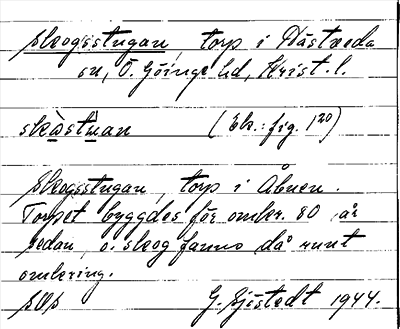 Skogsstugan, torp i Hästveda
sn, Ö. Göinge hd, Krist. l.
skåstu̇an (Ek.: fig. 120)
Skogsstugan, torp i Åbuen.
Torpet byggdes för omkr. 80 år
sedan, o. skog fanns då runt
omkring.
sOs G. Sjöstedt 1944.